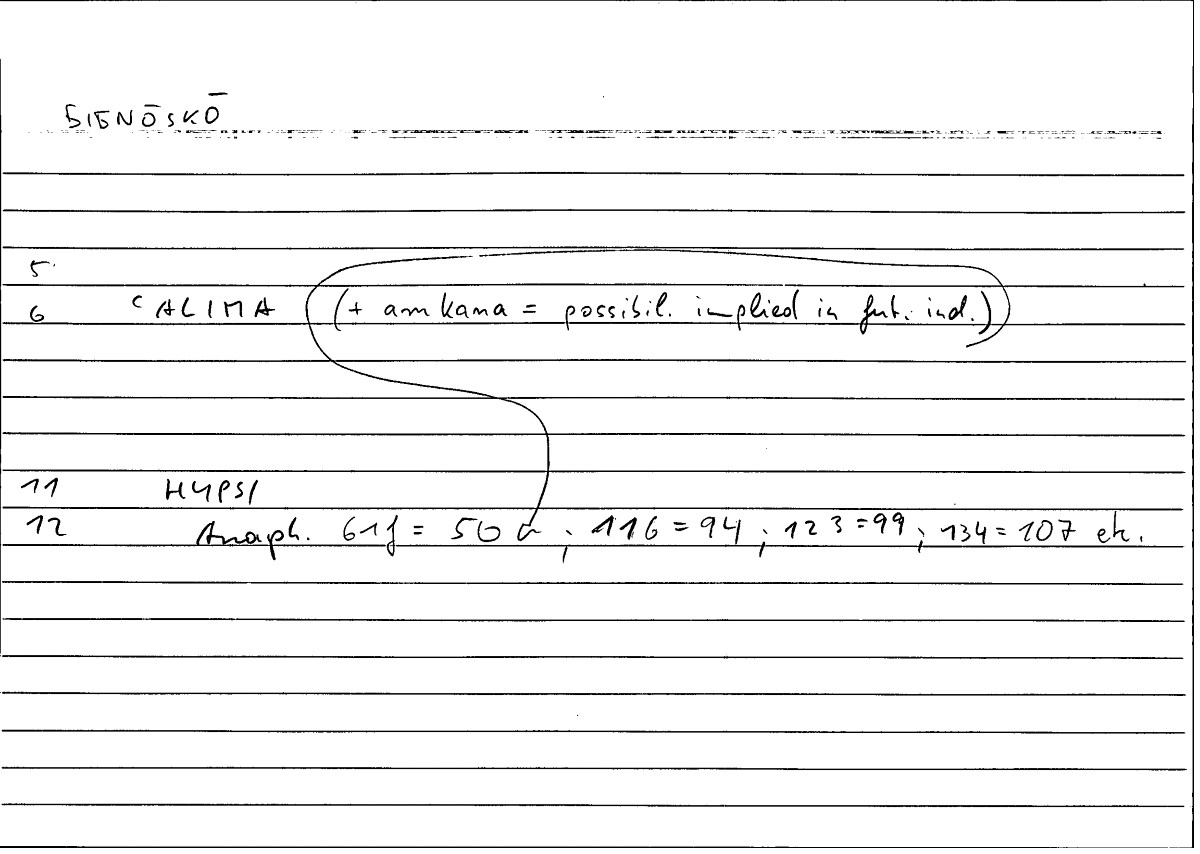 GIGNŌSKŌ
5
6 ʿALIMA (+ amkana = possibil. implied in fut. ind.)
11 HYPSI
12 Anaph. 61f = 50 ; 116 = 94 ; 123 = 99 ; 134 = 107 etc.